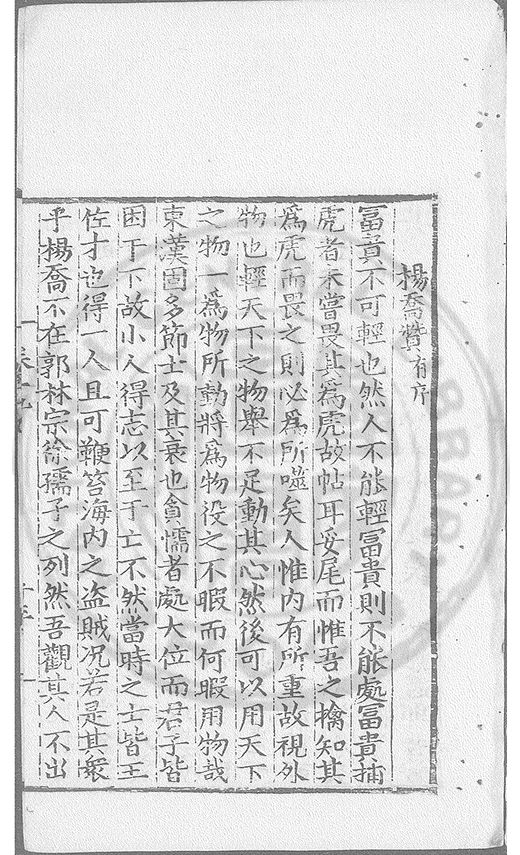 楊喬贊有序
富貴不可輕也然人不能輕冨貴則不能處冨貴捕
虎者未嘗畏其爲虎故帖耳妥尾而惟吾之擒知其
爲虎而畏之則必爲所噬矣人惟内有所重故視外
物也輕天下之物舉不足動其心然後可以用天下
之物一爲物所動將爲物役之不暇而何暇用物哉
東漢固多節士及其衰也貪懦者處大位而君子皆
困于下故小人得志以至于亡不然當時之士皆王
佐才也得一人且可鞭笞海内之盗賊况若是其衆
乎楊喬不在郭林宗徐孺子之列然吾觀其人不出